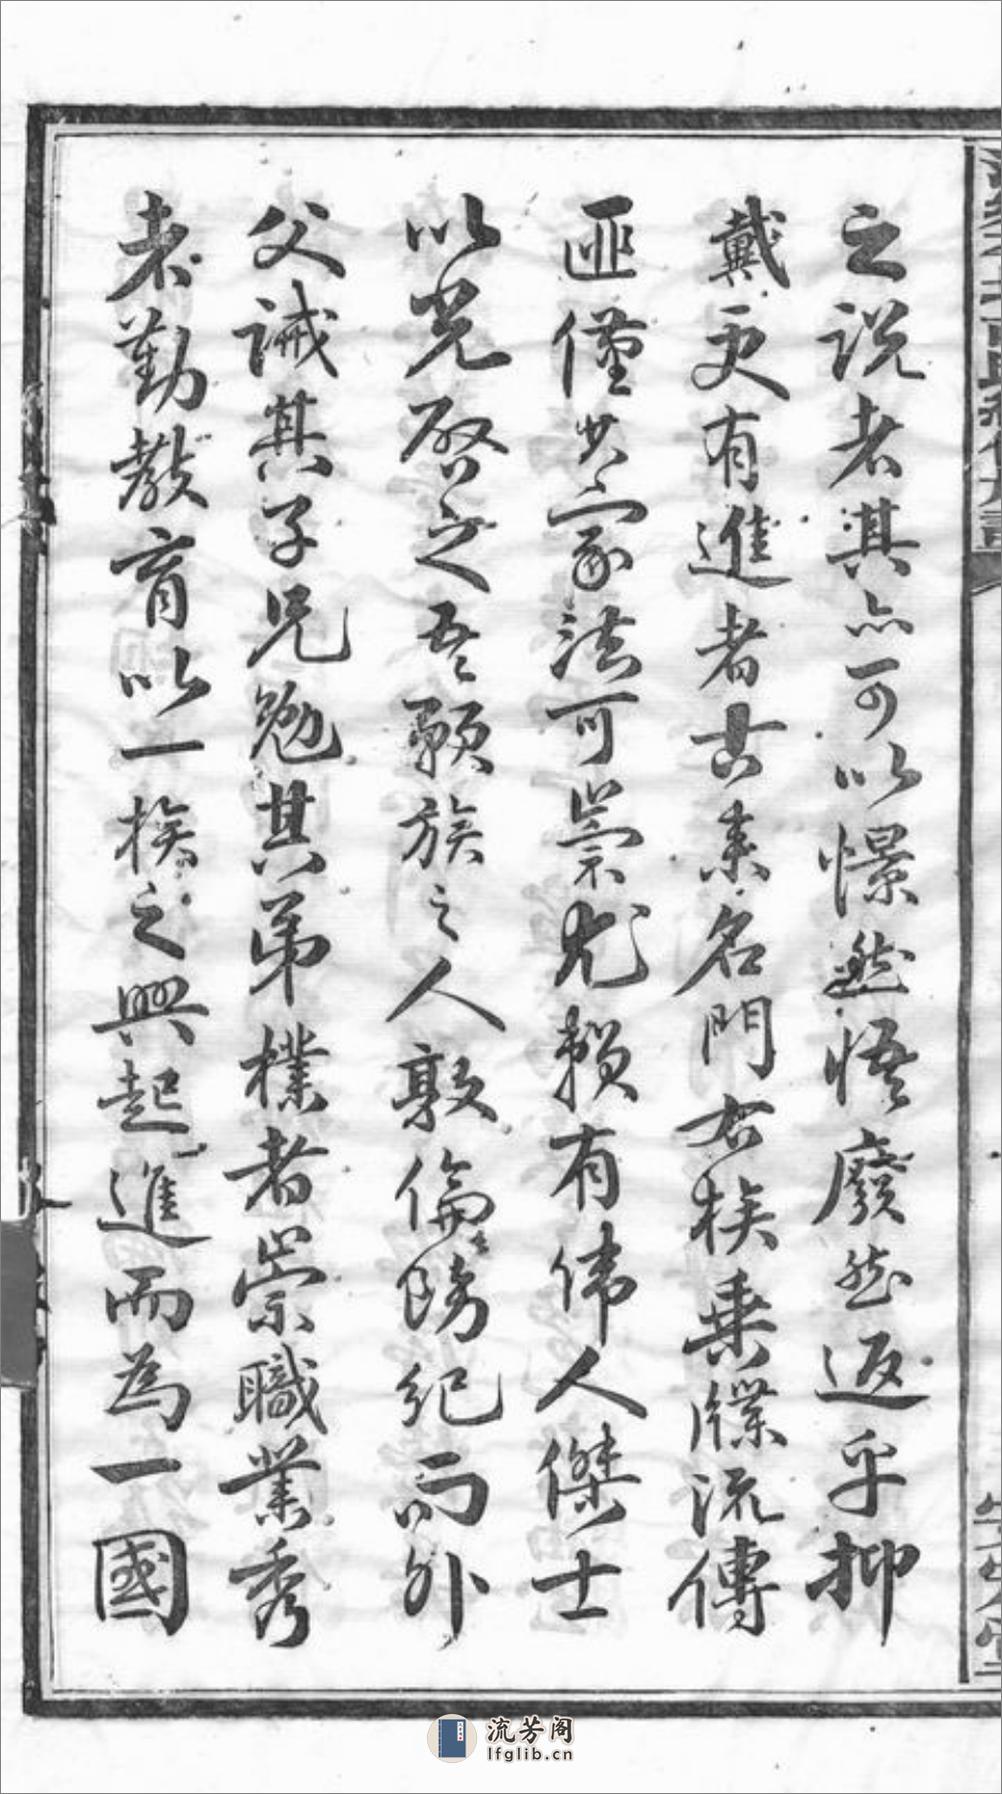 之說者其亦可以憬然悟廢然返乎抑
戴更有進者古來名門右族乘牒流傳
匪僅其家法可崇尤賴有偉人傑士
以光啓之吾願族之人敦倫飭紀而外
父誡其子兄勉其弟樸者崇職業秀
者勤教育以一族之興起進而為一國
流芳阁
lfglib.cn